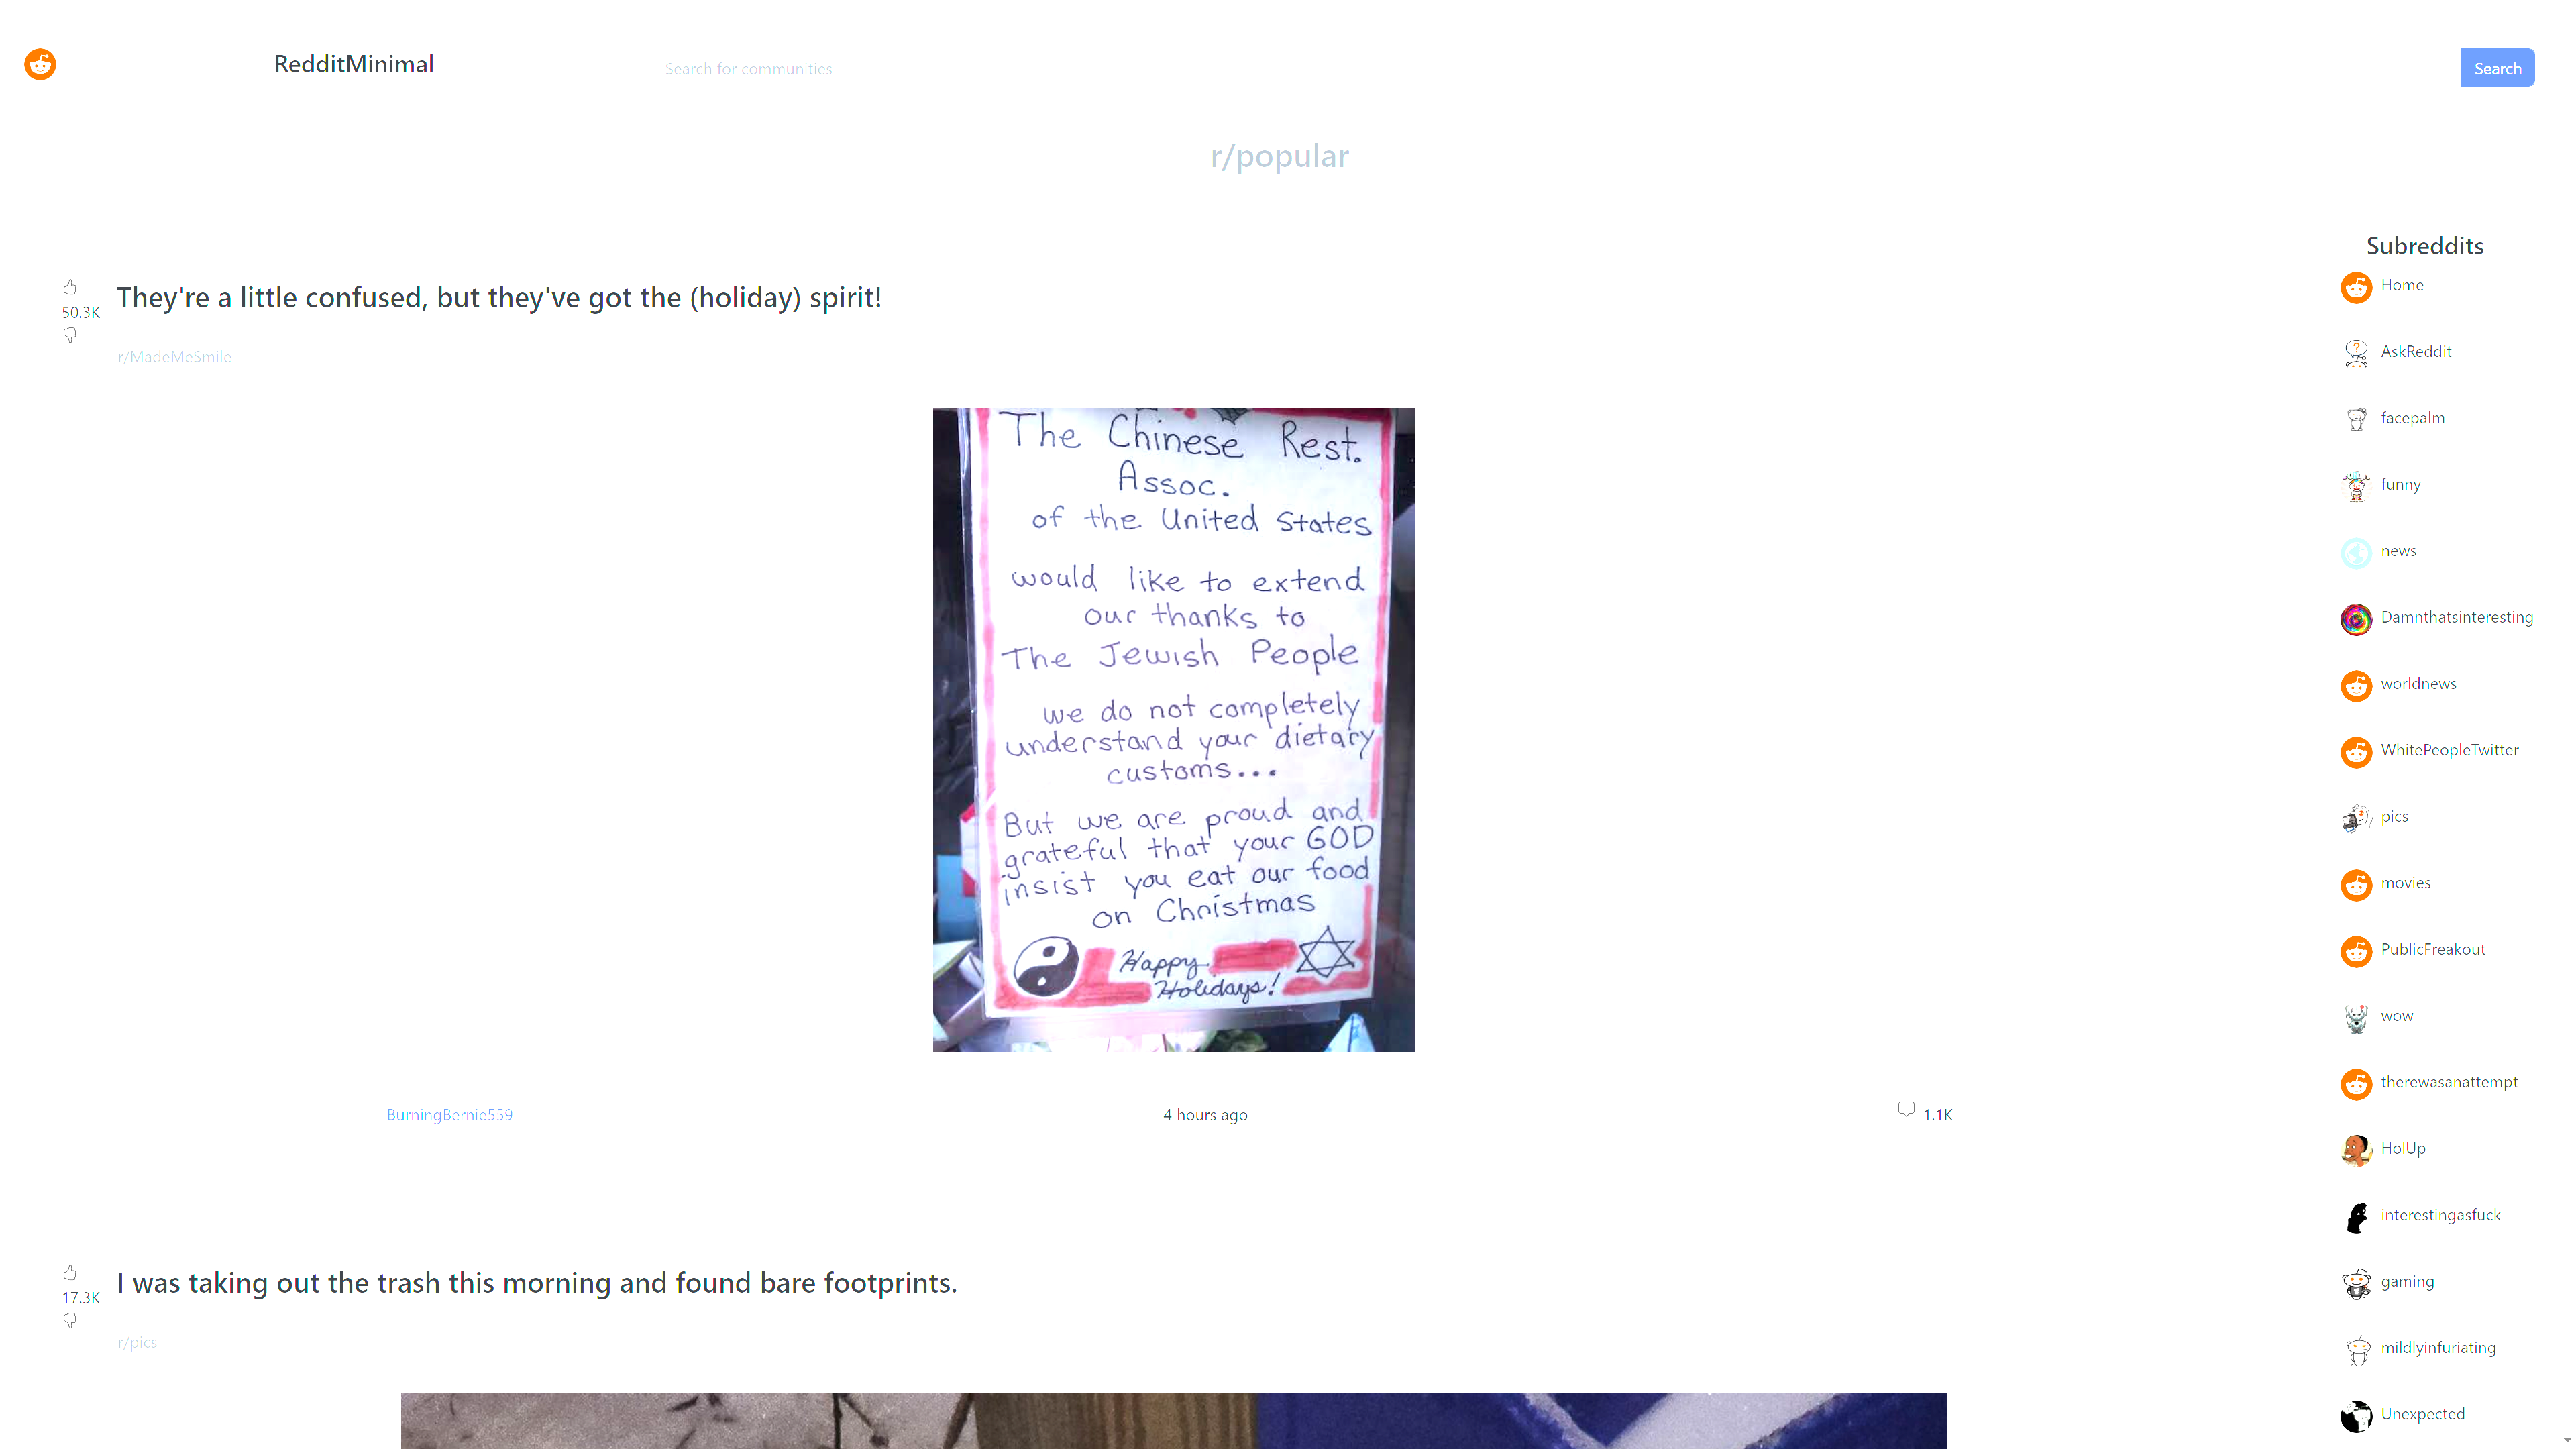 RedditMinimal
Search for communities
Search
r/popular
50.3K
They're a little confused, but they've got the (holiday) spirit!
r/MadeMeSmile
The Chinese Rest.
Assoc.
of the United States
would like to extend
our thanks to
The Jewish People
we do not completely
understand your dietary
customs...
But we are proud and
grateful that your GOD
insist you eat our food
on Christmas
Happy
Holidays!
BurningBernie559
4 hours ago
1.1K
17.3K
I was taking out the trash this morning and found bare footprints.
r/pics
Subreddits
Home
AskReddit
facepalm
funny
news
Damnthatsinteresting
worldnews
WhitePeopleTwitter
pics
movies
PublicFreakout
wow
therewasanattempt
HolUp
interestingasfuck
gaming
mildlyinfuriating
Unexpected